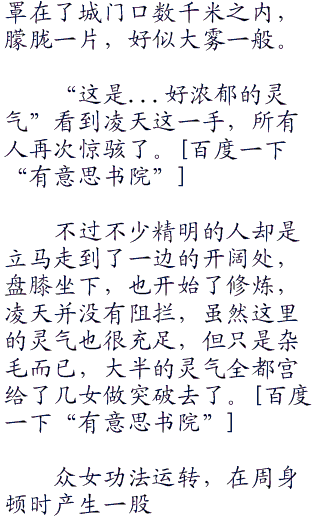 罩在了城门口数千米之内，
朦胧一片，好似大雾一般。
“这是...好浓郁的灵
气”看到凌天这一手，所有
人再次惊骇了。[百度一下
“有意思书院”]
不过不少精明的人却是
立马走到了一边的开阔处，
盘膝坐下，也开始了修炼，
凌天并没有阻拦，虽然这里
的灵气也很充足，但只是杂
毛而已，大半的灵气全都宫
给了几女做突破去了。[百度
一下“有意思书院”]
众女功法运转，在周身
顿时产生一股